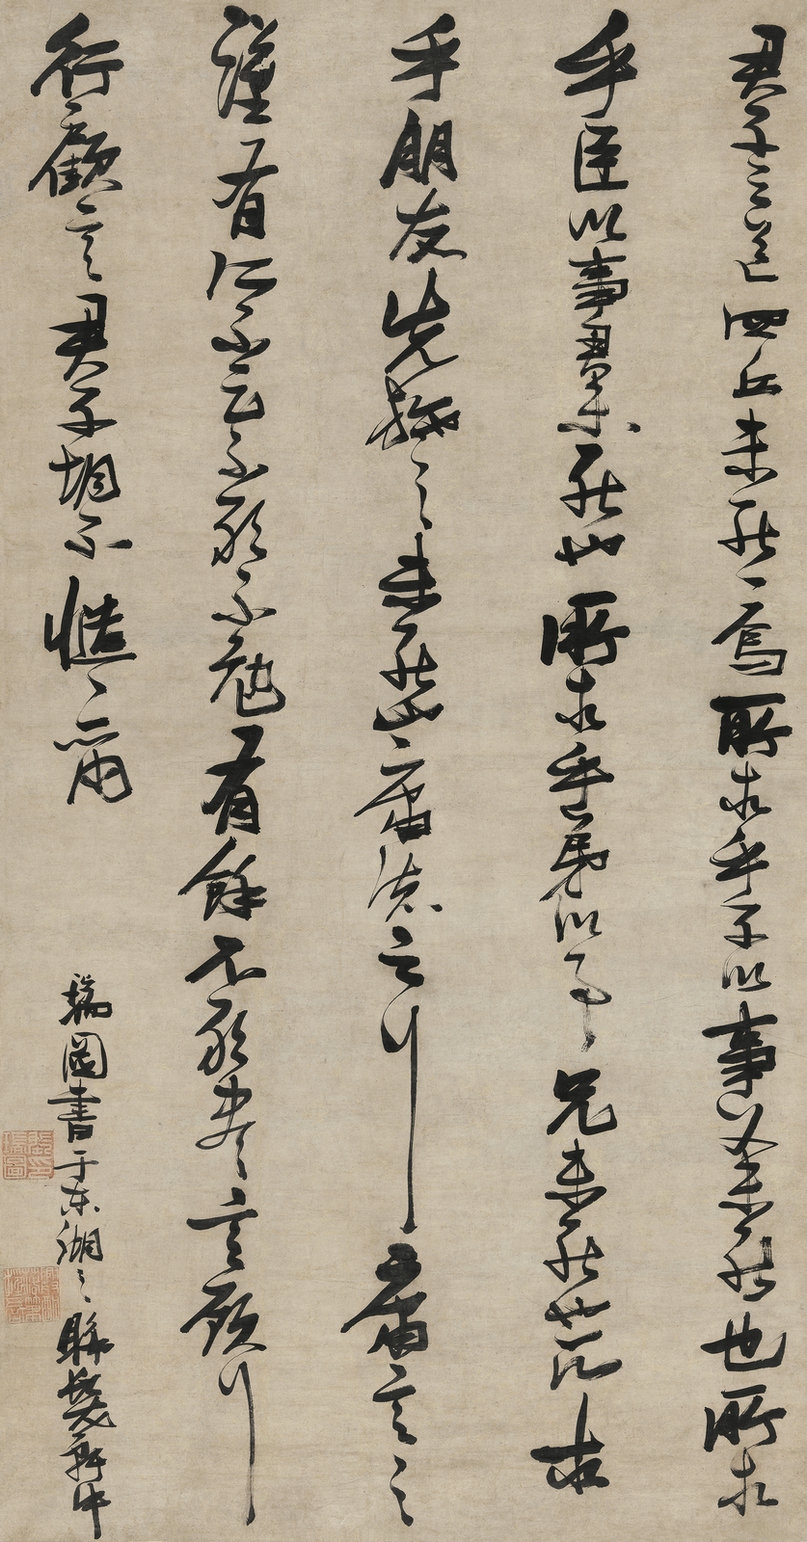 君子之道四丘未能一焉所求乎子以事父未能也所求
乎臣以事君未能也所求乎弟以事兄未能也所求
乎朋友先施之未能也庸德之行庸言之
謹有所不足不敢不勉有餘不敢盡言顧行
行顧言君子胡不慥慥爾
瑞圖書于東湖之軒中